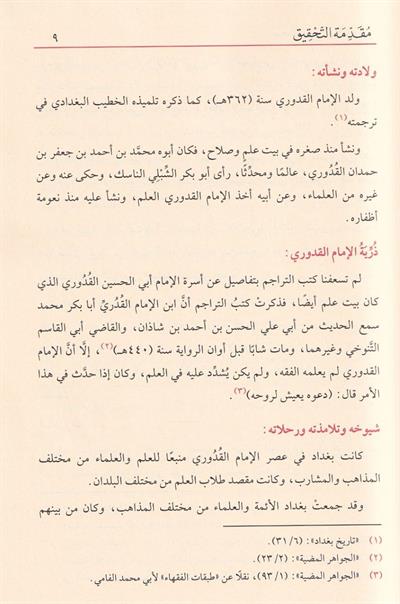 مُقَدِّمَة التَّحْقِيق ٩
ولادته ونشأته:
ولد الإمام القدوري سنة (٣٦٢هـ)، كما ذكره تلميذه الخطيب البغدادي في
ترجمته(١).
ونشأ منذ صغره في بيت علم وصلاح، فكان أبوه محمَّد بن أحمد بن جعفر بن
حمدان القُدُوري، عالمًا ومحدِّثًا، رأى أبو بكر الشِّبْلي الناسك، وحكى عنه وعن
غيره من العلماء، وعن أبيه أخذ الإمام القدوري العلم، ونشأ عليه منذ نعومة
أظفاره.
ذُرِّيَةُ الإمام القدوري:
لم تسعفنا كتب التراجم بتفاصيل عن أسرة الإمام أبي الحسين القُدُوري الذي
كان بيت علم أيضًا، فذكرتْ كتبُ التراجم أنَّ ابن الإمام القُدُوريِّ أبا بكر محمد
سمع الحديث من أبي علي الحسن بن أحمد بن شاذان، والقاضي أبي القاسم
التَّنوخي وغيرهما، ومات شابًا قبل أوان الرواية سنة (٤٤٠هـ)(٢)، إلَّا أنَّ الإمام
القدوري لم يعلمه الفقه، ولم يكن يُشدِّد عليه في العلم، وكان إذا حدَّث في هذا
الأمر قال: (دعوه يعيش لروحه)(٣).
شيوخه وتلامذته ورحلاته:
كانت بغداد في عصر الإمام القُدُوري منبعًا للعلم والعلماء من مختلف
المذاهب والمشارب، وكانت مقصد طلاب العلم من مختلف البلدان.
وقد جمعتْ بغداد الأئمة والعلماء من مختلف المذاهب، وكان من بينهم
(١) «تاريخ بغداد»: (٣١/٦).
(٢) «الجواهر المضية»: (٢٣/٢).
(٣) «الجواهر المضية»: (٩٣/١)، نقلًا عن «طبقات الفقهاء» لأبي محمد الفامي.